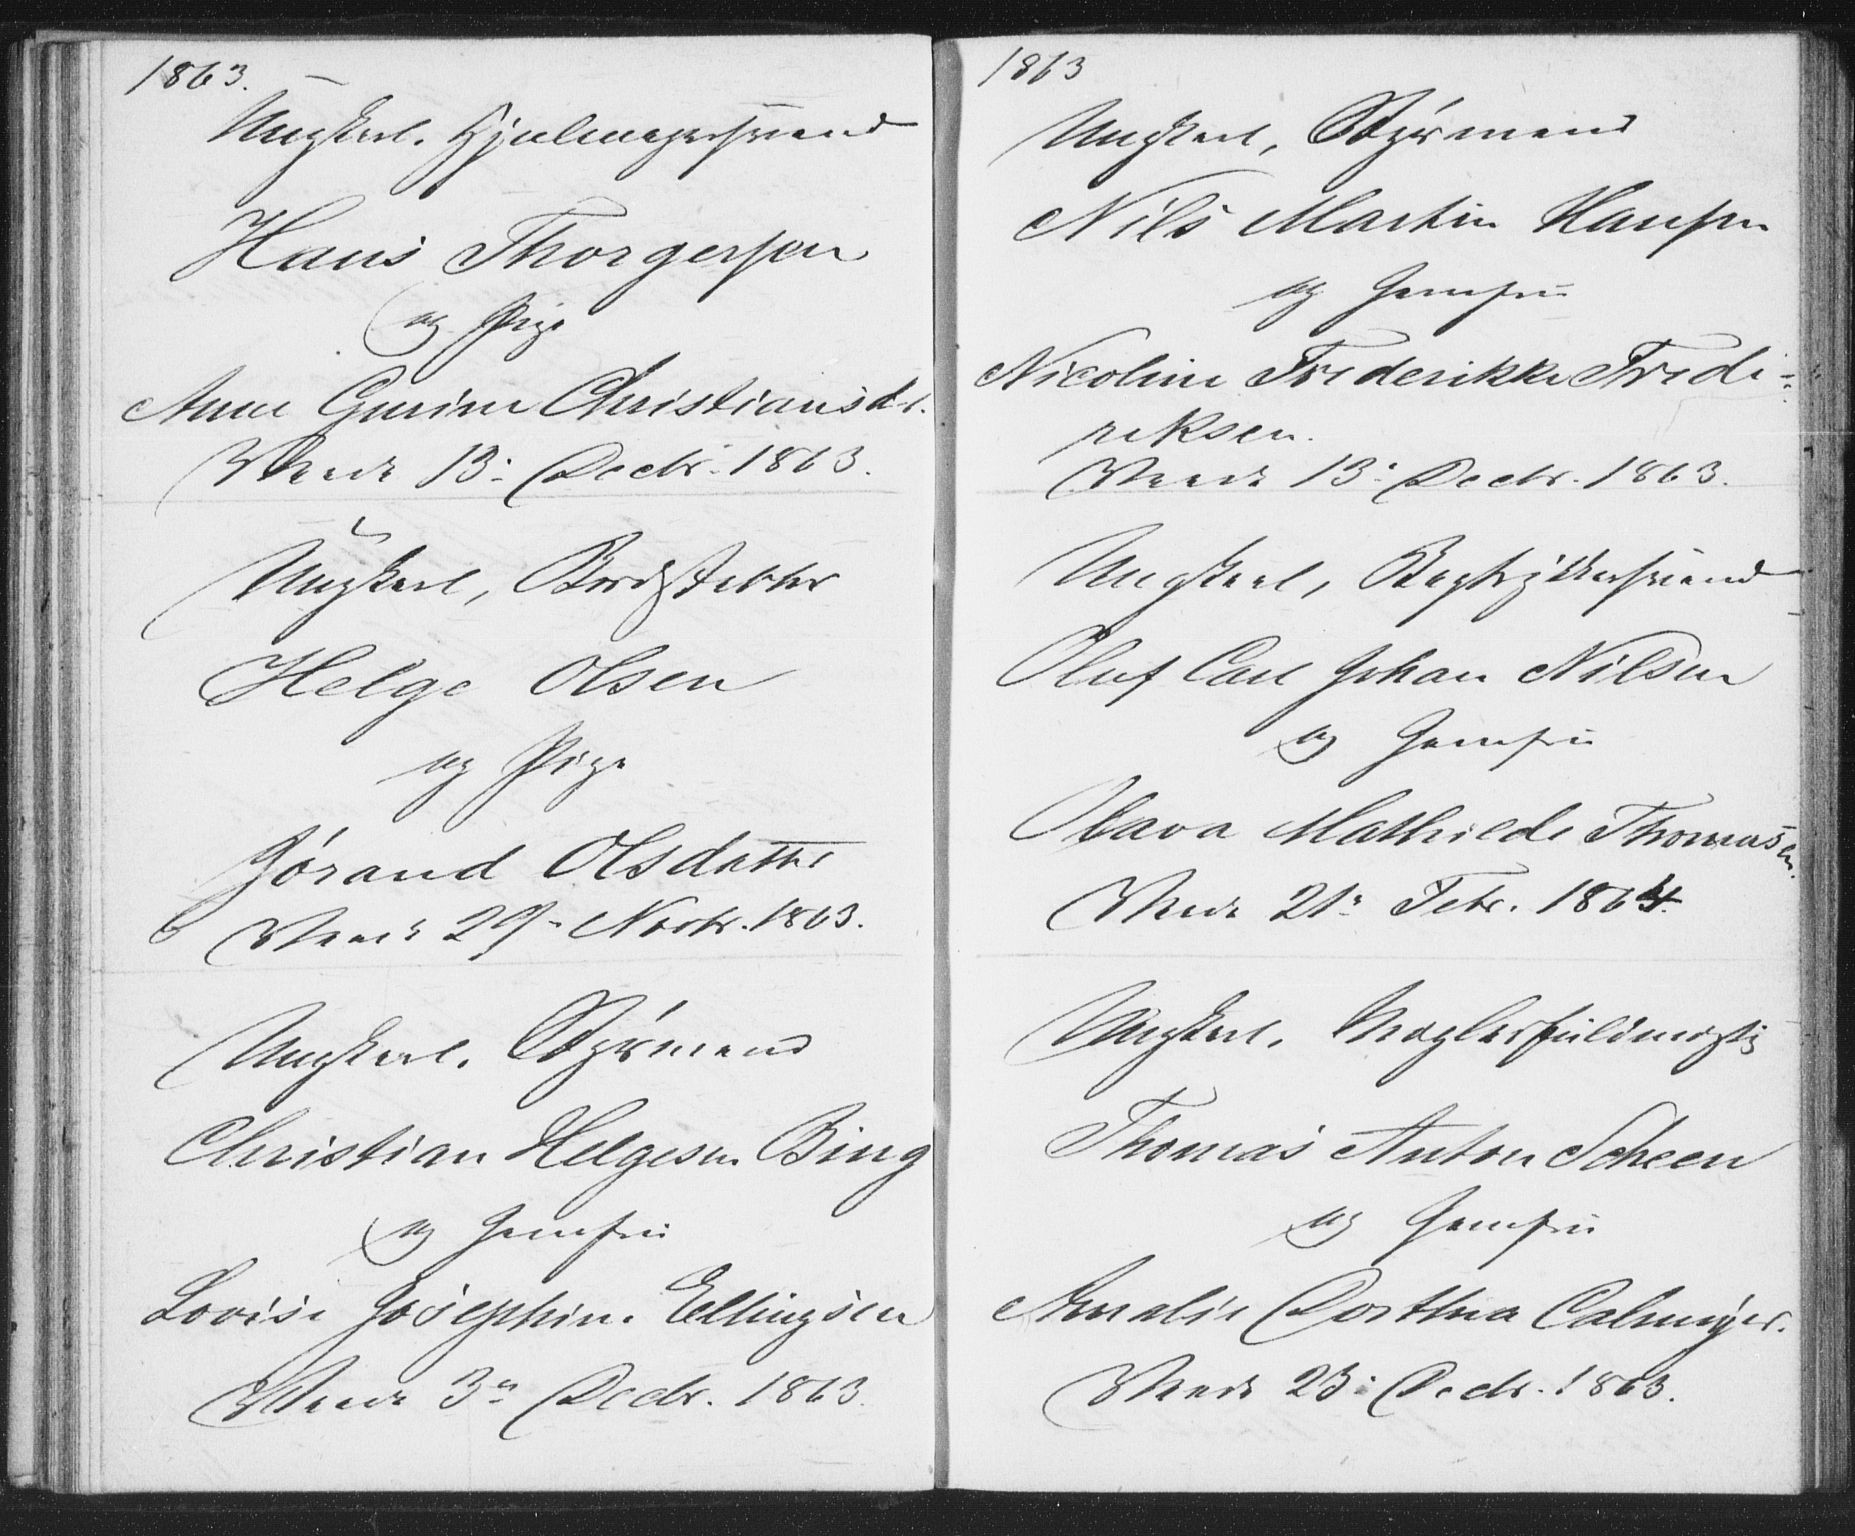 1863.
Ungkarl. Hjulmagersvend
Hans Thorgersen
og Pige
Anne Gurine Christiansdr.
Viede 13: Decbr. 1863.
Ungkarl,
Helge Olsen
og Pige
Jórand Olsdatter
Viede 29- Novbr. 1863.
Ungkarl. Styrmand
Christian Helgesen Bing
og Jomfru
Lovise Josephine Ellingsen
Viede 3n Decbr. 1863.
1863
Ungkarl, Styrmand
Nils Martin Hansen
og Jomfru
Nicoline Frederikke Fredi-
reksen.
Viede 13: Decbr. 1863.
Ungkarl, Bogtrykkersvend
Oluf Carl Johan Nilsen
og Jomfru
Olava Mathilde Thomasen.
Viede 21: Febr. 1864.
Ungkarl. Mæglerfuldmægtig
Thomas Anton Scheen
og Jomfru
Amalie Dorthea Calmeyer.
Viede 23: Decbr. 1863.